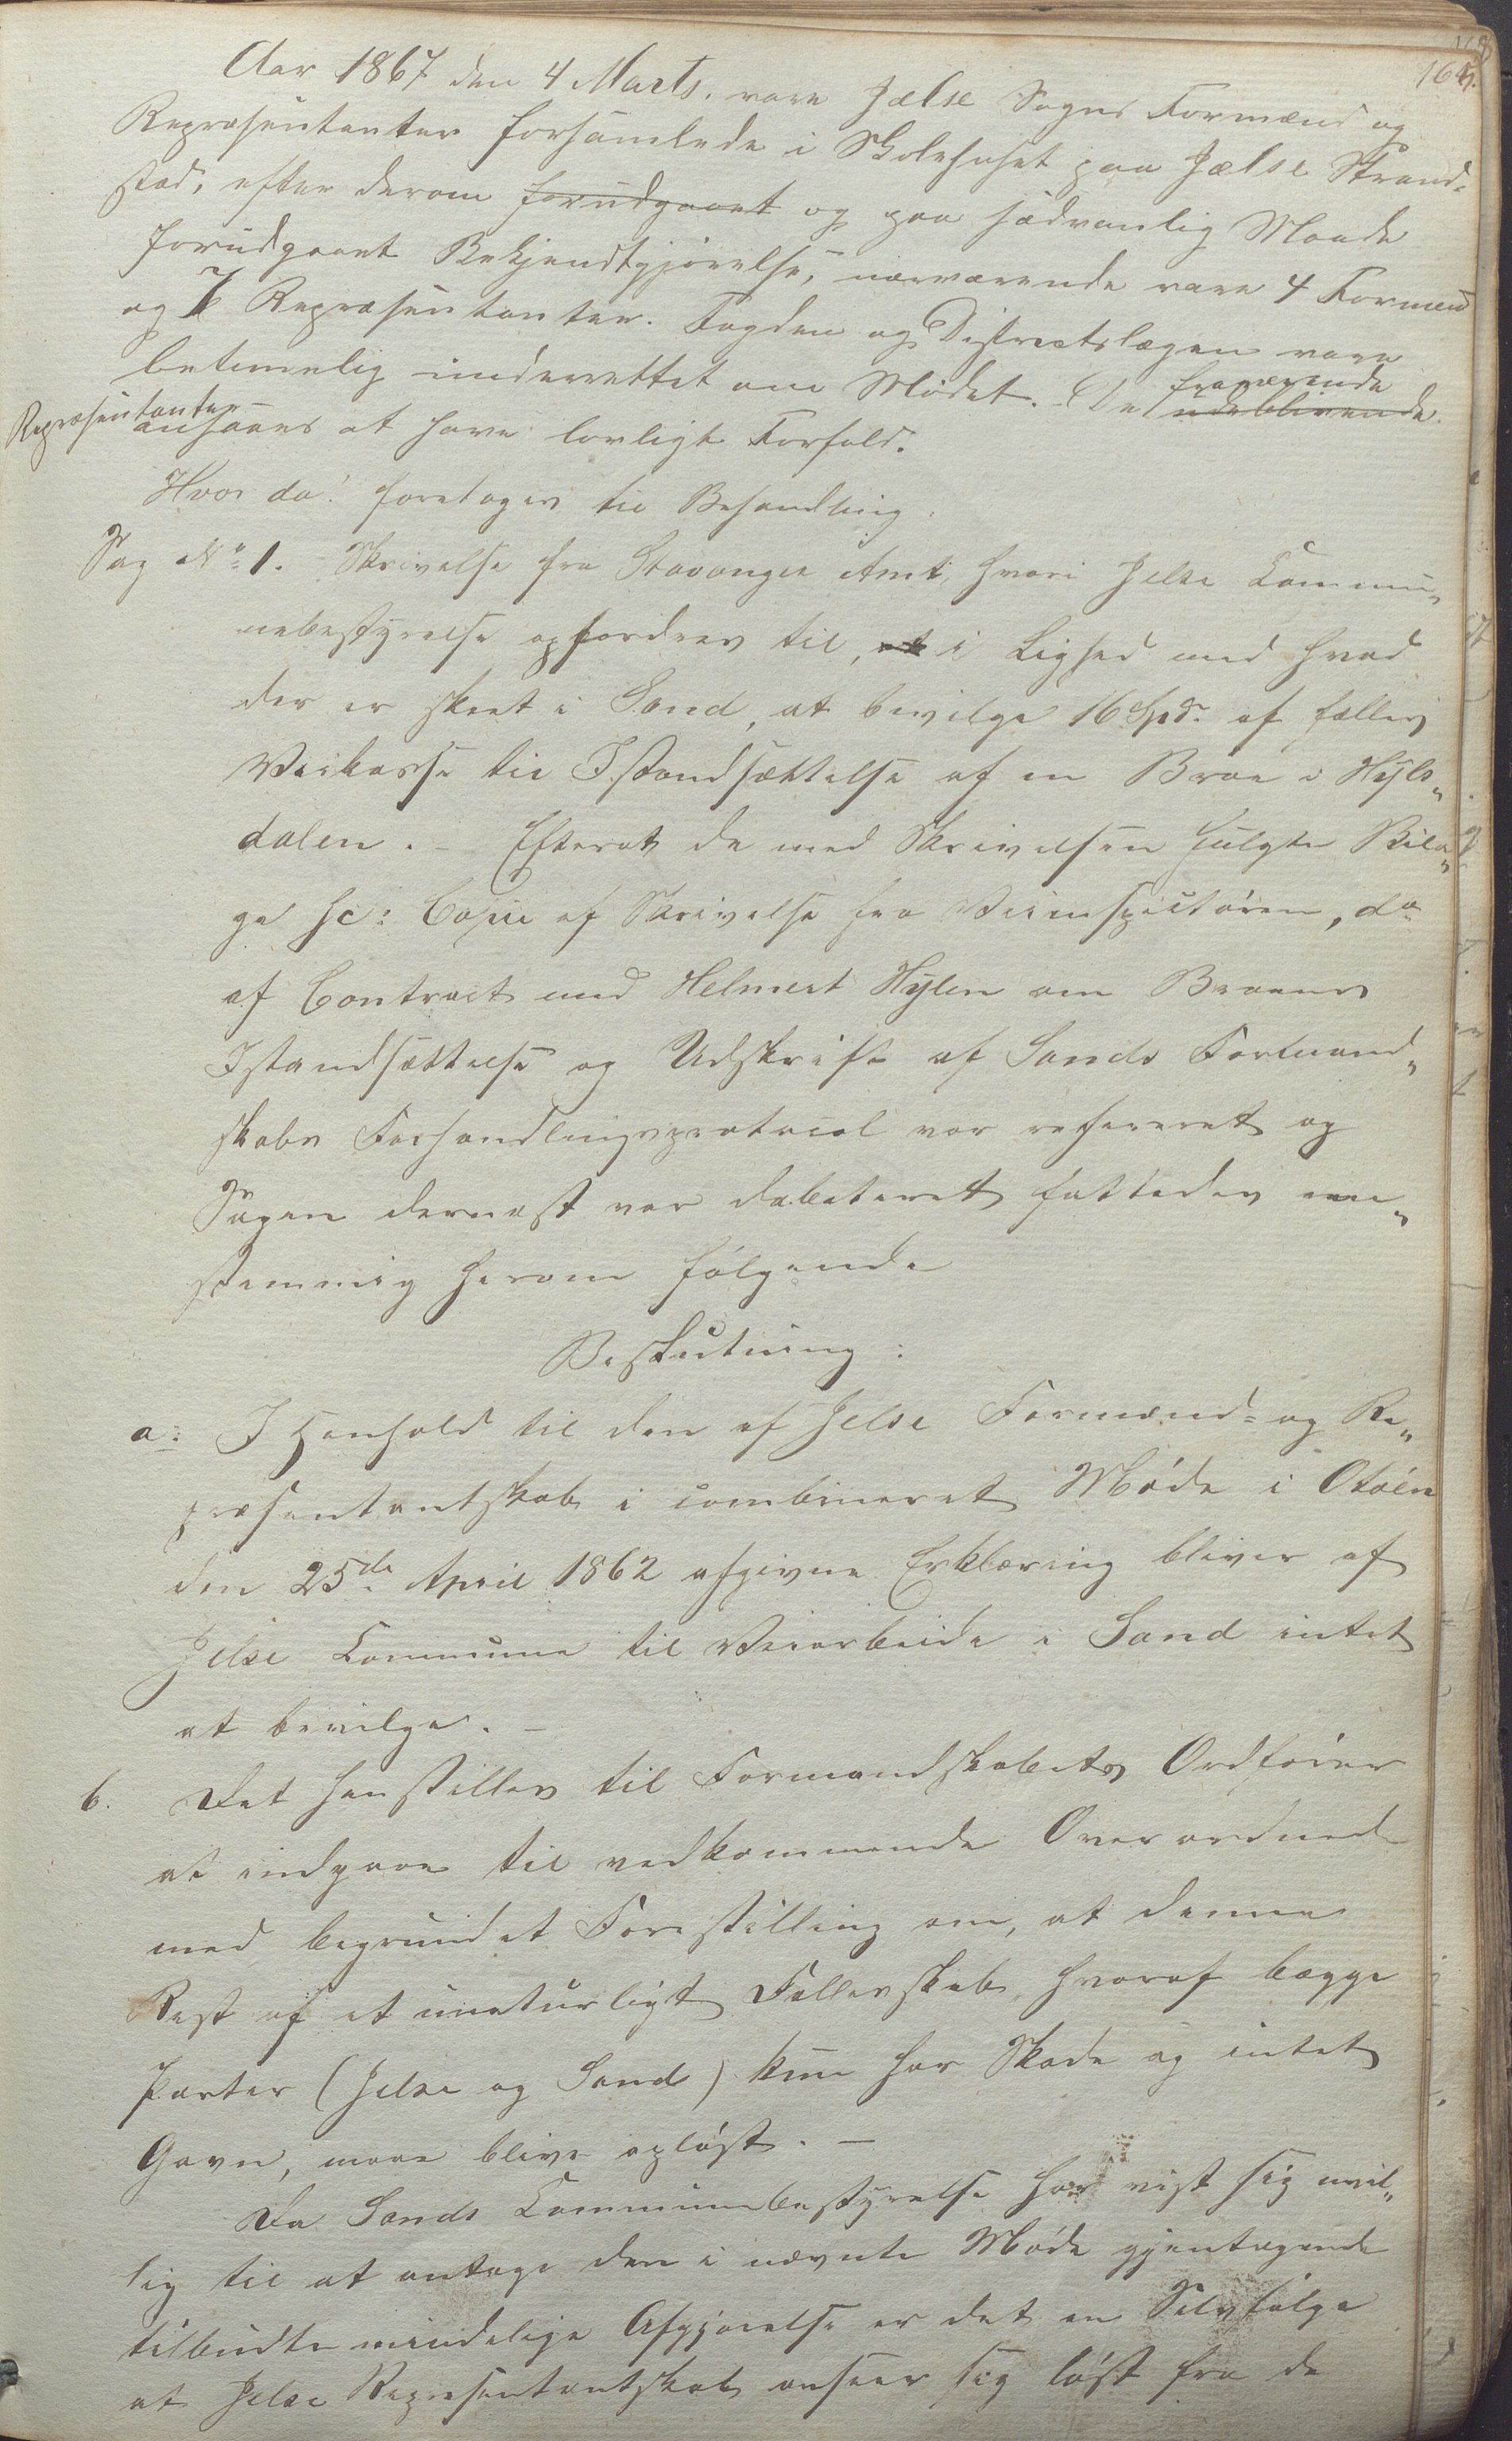 164.
Aar 1867 den 4 Marts. vare Jælse Sogns Formænd og
Repræsentanter forsamlede i Skolehuset paa Jælse Strand-
sted, efter derom forudgaaet og paa sædvanlig Maade
forudgaaet Bekjendtgjørelse, nærværende vare 4 Formænd
og 7 Repræsentanter. Fogden og Districtslægen vare
betimelig underrettet om Mødet. De fraværende
udeblivende
Repræsentanter
ansaaes at have lovligt Forfald.
Hvor da! foretoges til Behandling.
Sag No 1. Skrivelse fra Stavanger Amt, hvori Jelse Commu„
nebestyrelse opfordres til, at i Lighed med hvad
der er skeet i Sand, at bevilge 16 Spd. af fælles
Veikasse til Istandsættelse af en Broe i Hyls„
dalen. – Efterat de med Skrivelsen fulgte Bila„
ge sc: Copie af Skrivelse fra Veiinspectøren, do
af Contract med Helmert Hylen om Broens
Istandsættelse og Udskrift af Sands Formand„
skabs Forhandlingsprotocol var refereret og
Sagen dernæst var debateret fattedes een„
stemmig herom følgende
Beslutning:
a: I Henhold til den af Jelse Formænd- og Re„
præsentantskab i combineret Møde i Otøen
den 25de April 1862 afgivne Erklæring bliver af
Jelse Commune til Veiarbeide i Sand intet
at bevilge. –
b. Det henstilles til Formandskabets Ordfører
at indgaae til vedkommende Overordnede
med begrundet Forestilling om, at denne
Rest af et unaturligt Fællesskab, hvoraf begge
Parter (Jelse og Sand) kun har Skade og intet
Gavn, maae blive opløst. –
Da Sands Communebestyrelse har vist sig uvil„
lig til at antage den i nævnte Møde gjentagende
tilbudte mindelige Afgjørelse er det en Selvfølge
at Jelse Repræsentantskab anseer sig løst fra de